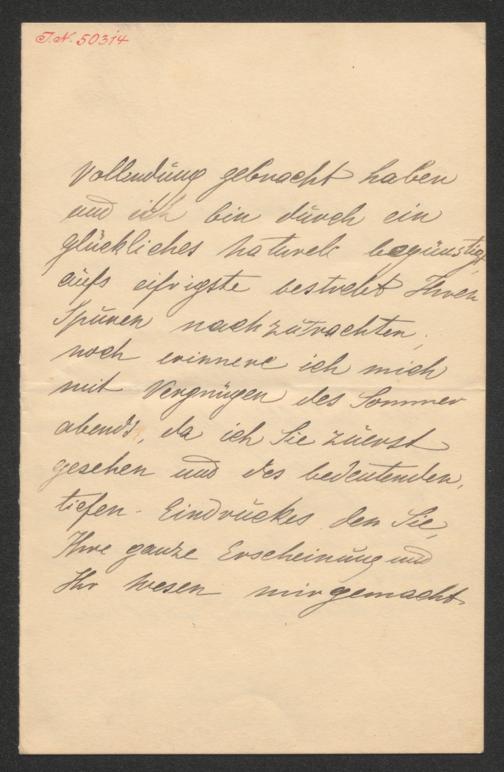 J.N. 50314
Vollendung gebracht haben
und ich bin durch ein
glückliches Naturell begünstigt,
aufs eifrigste bestrebt Ihren
Spuren nachzutrachten;
noch erinnere ich mich
mit Vergnügen des Sommer
abends, da ich Sie zuerst
gesehen und des bedeutenden,
tiefen Eindruckes den Sie,
Ihre ganze Erscheinung und
Ihr Wesen mir gemacht